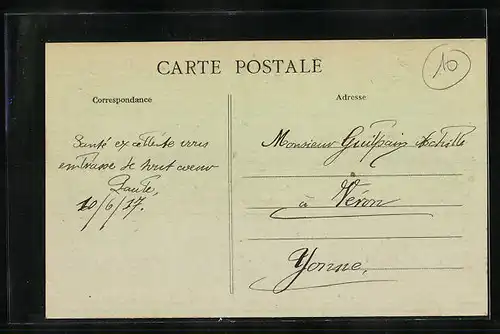 CARTE POSTALE
10
Correspondance
Adresse
Santé excellente vous
embrasse de tout coeur
10/6/17.
Monsieur Achille
à Véron
Yonne,